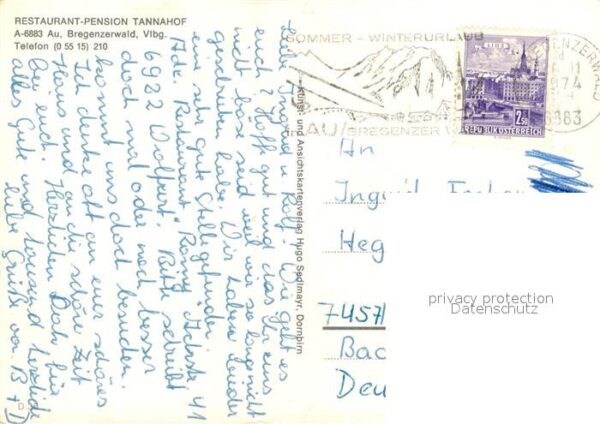 RESTAURANT-PENSION TANNAHOF
A-6883 Au, Bregenzerwald, Vlbg.
Telefon (0 55 15) 210
Liebe Ingrid u. Rolf! Wie geht es
euch? Hoff gut und das Ihr uns
nicht böse seid weil wir so lange nicht
geschrieben habe. Wir haben leider
ein sehr gute Stelle gefunden.
Adr. Restaurant Achstr 41
6922 Wolfurt. Bitte schreibt
doch mal oder noch besser
kommt uns doch besuchen.
Ich denke oft an euer schönes
Haus und an die schöne Zeit
bei euch. Herzlichen Dank für
alles Gute und tausend herzliche
liebe Grüße von B + D
Kunst- und Ansichtskartenverlag Hugo Sedlmayr, Dornbirn
SOMMER - WINTERURLAUB
AU/BREGENZER
BREGENZERWALD
6883
LINZ
2.50
REPUBLIK ÖSTERREICH
An
Ingrid
Heg
7457
Bac
Deu
privacy protection
Datenschutz